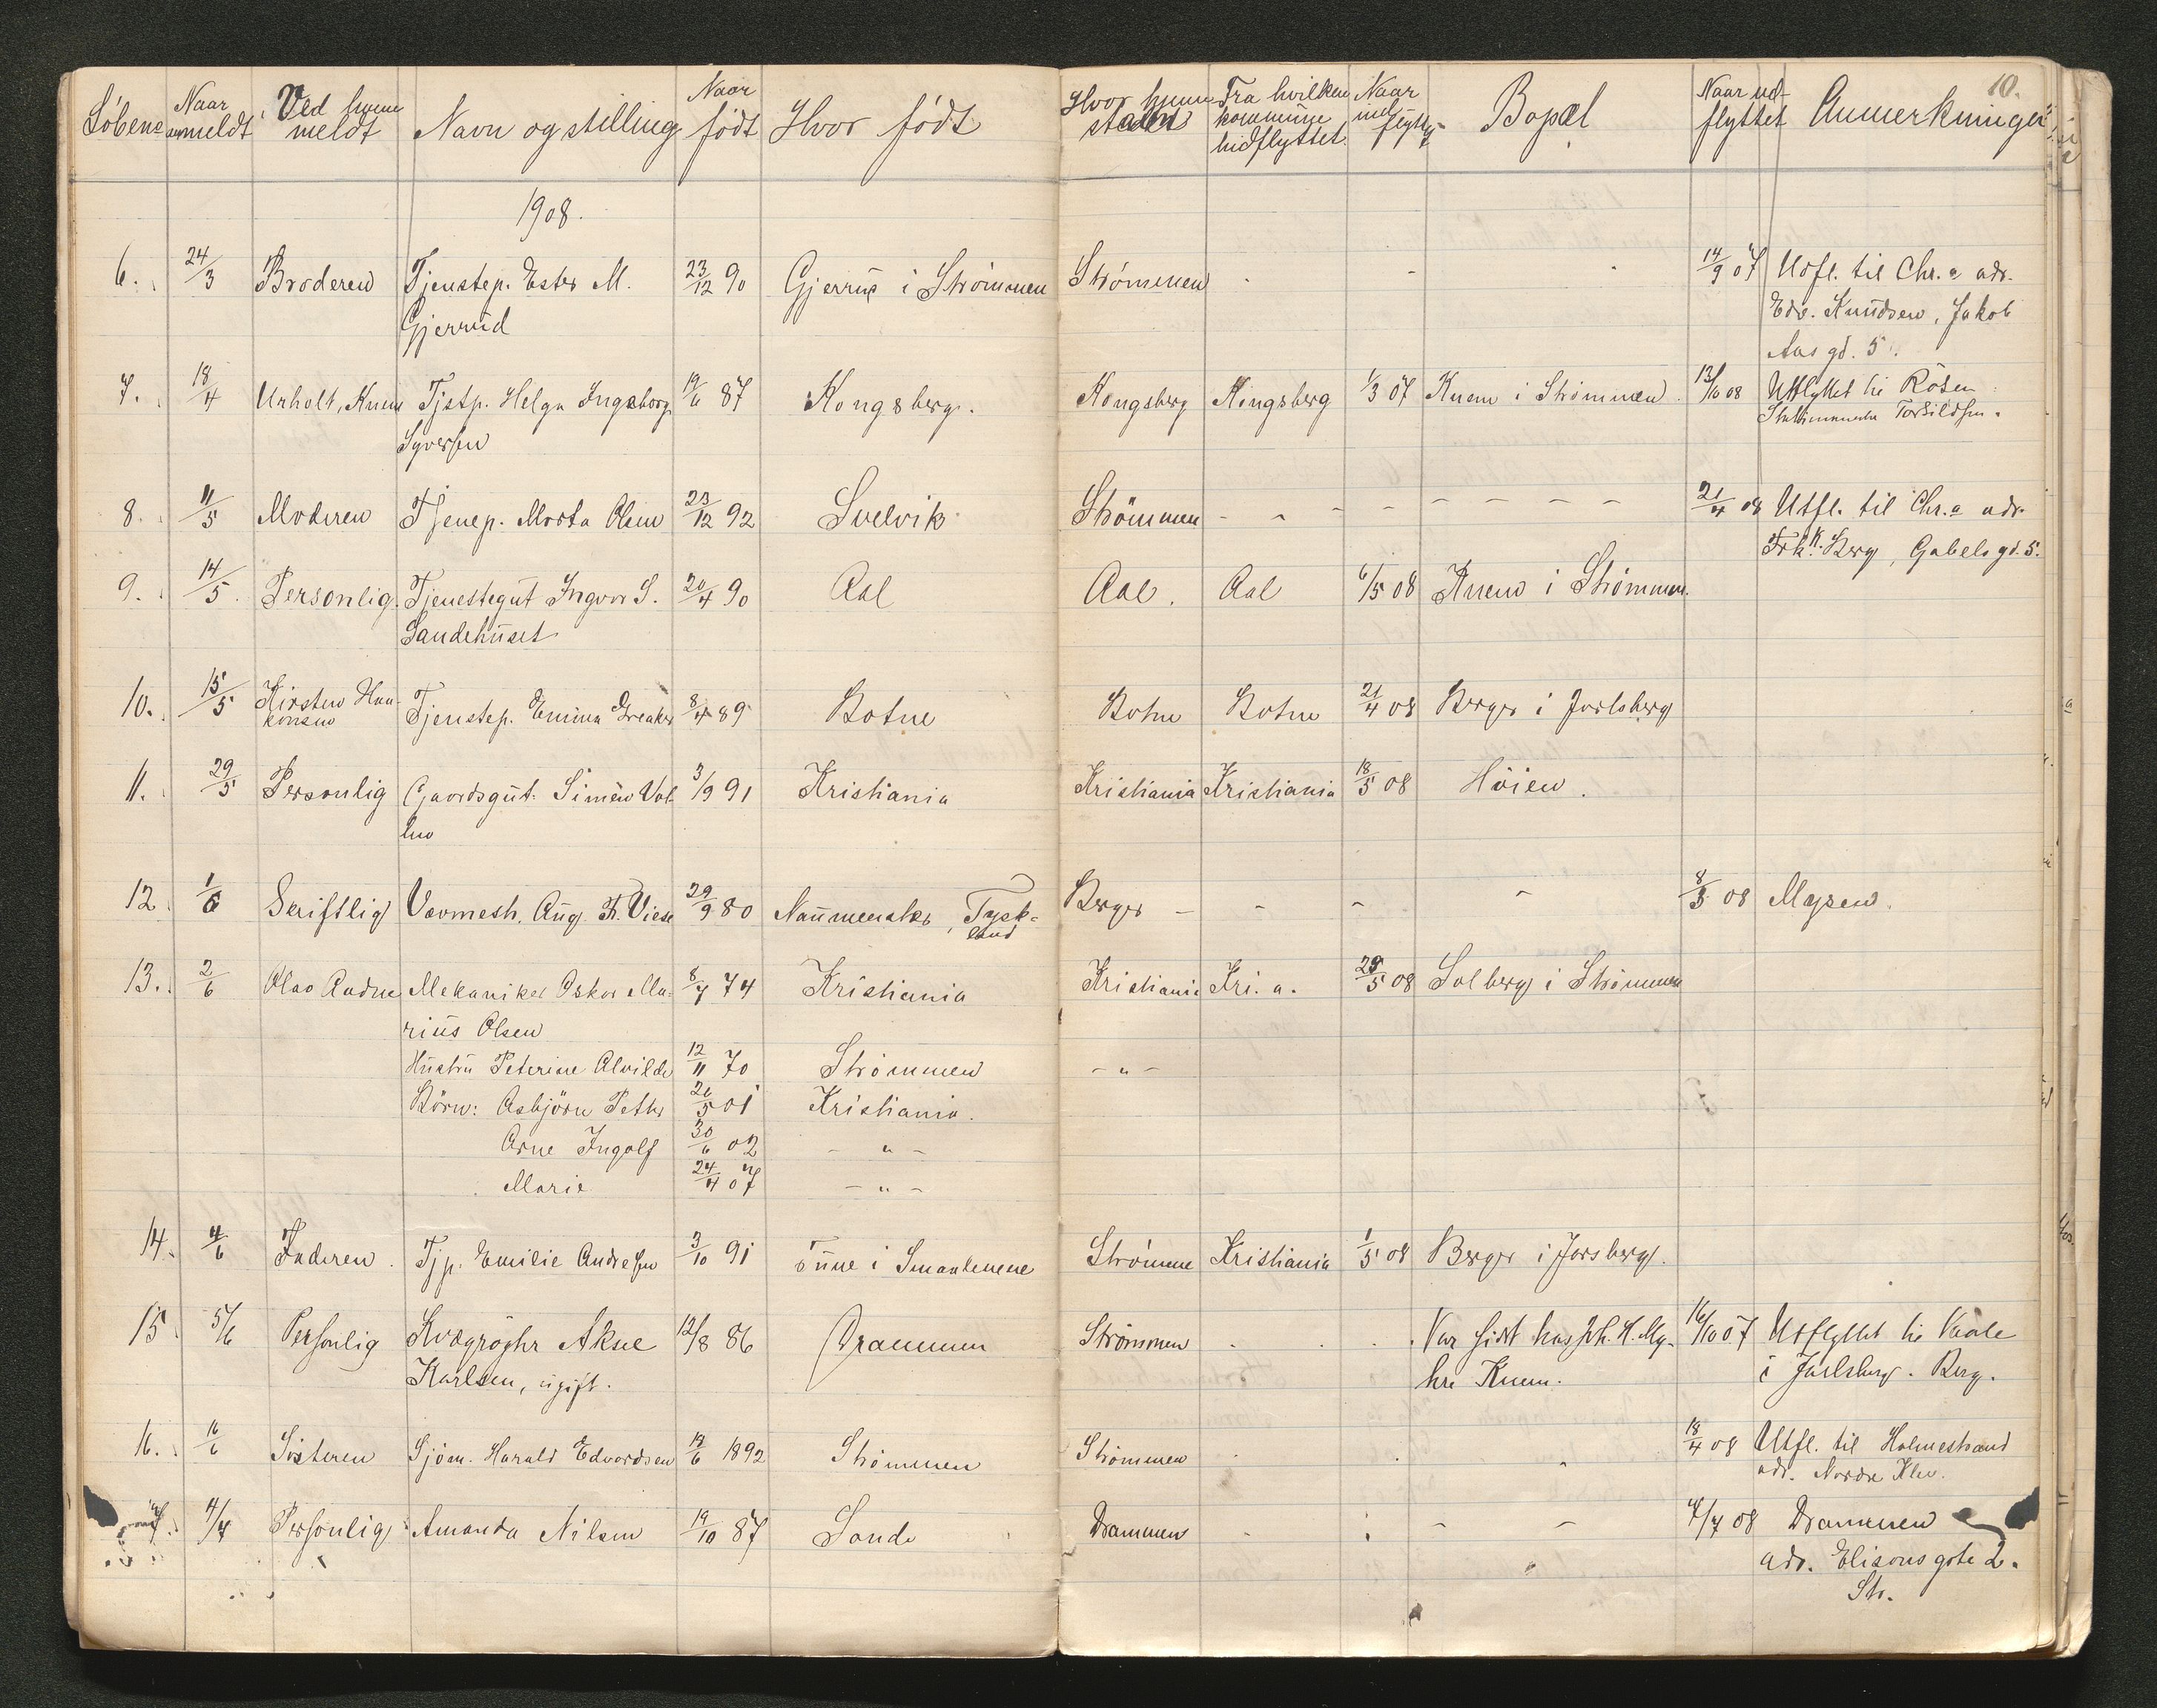 10.
Löbenr Naar anmeldt Ved hvem meldt Navn og stilling Naar födt Hvor födt Hvor hjemme Fra hvilken kommune hidflyttet. Naar indflyttet Bopæl Naar udflyttet Anmerkninger
1908.
6. 24/3 Broderen Tjenstep. Ester M. 23/12 90 Gjerrud i Strömmen Strömmen - - - 14/9 07 Udfl. til Chr.a adr.
Gjerrud Edv. Knudsen, Jakob
Aas gd. 5.
7. 18/4 Unholt, Knem Tjstp. Helga Ingeborg 19/6 87 Kongsberg. Kongsberg Kongsberg 1/3 07 Knem i Strömmen. 13/10 08 Utflyttet til Röken
Syversen Torkildsen.
8. 11/5 Moderen Tjenep. Marta Olsen 23/12 92 Svelvik Strömmen - - - - - - - 21/4 08 Utfl. til Chr.a adr.
Frk. Berg, Gabels gd. 5.
9. 14/5. Personlig. Tjenestegut Ingvar S. 20/4 90 Aal Aal. Aal 6/5 08 Knem i Strömmen.
Sandehuset
10. 15/5 Kirsten Haa- Tjenstep. Emma Greaker 8/4 89 Botne Botne Botne 21/4 08 Berger i Jarlsberg
konsen
11. 29/5 Personlig Gaardsgut. Simen Vol- 3/9 91 Kristiania Kristiania Kristiania 18/5 08 Höien.
12. 1/6 Scriftlig Vævmest. Aug. Fr. Viese 29/9 80 Naumenster, Tysk- Berger - - - - 8/3 08 Mysen.
land
13. 2/6 Olao Aadne Mekaniker Oskar Ma- 8/7 74 Kristiania Kristiania Kri.a. 29/5 08 Solberg i Strömmen
rius Olsen
Hustru Peterine Alvilde 12/11 70 Strömmen - " -
Börn: Asbjörn Petter 20/5 01 Kristiania.
Arne Ingolf 30/6 02 - " -
Marie 24/4 07 - " -
14. 4/6 Faderen. Tjp. Emilie Andresen 3/10 91 i Strömm Kristiania 1/5 08 Berger i Jarsberg.
15. 5/6 Personlig Kvægrögter Aksel 12/8 86 Drammen Strömmen - . . Var sidst hos Joh. H. My- 16/10 07 Utflyttet til Vaale
Karlsen, ugift. hre Knem. i Jarlsberg. Berg.
16. 16/6 Sösteren Sjöm. Harald Edvardsen 19/6 1892 Strömmen Strömmen - - - 18/4 08 Utfl. til Holmestrand
adr. Nordre
7. 4/7 Personlig Amanda Nilsen 19/10 87 Sande Drammen - - - - 4/7 08 Drammen
adr. Elisons gate 2.
Str.